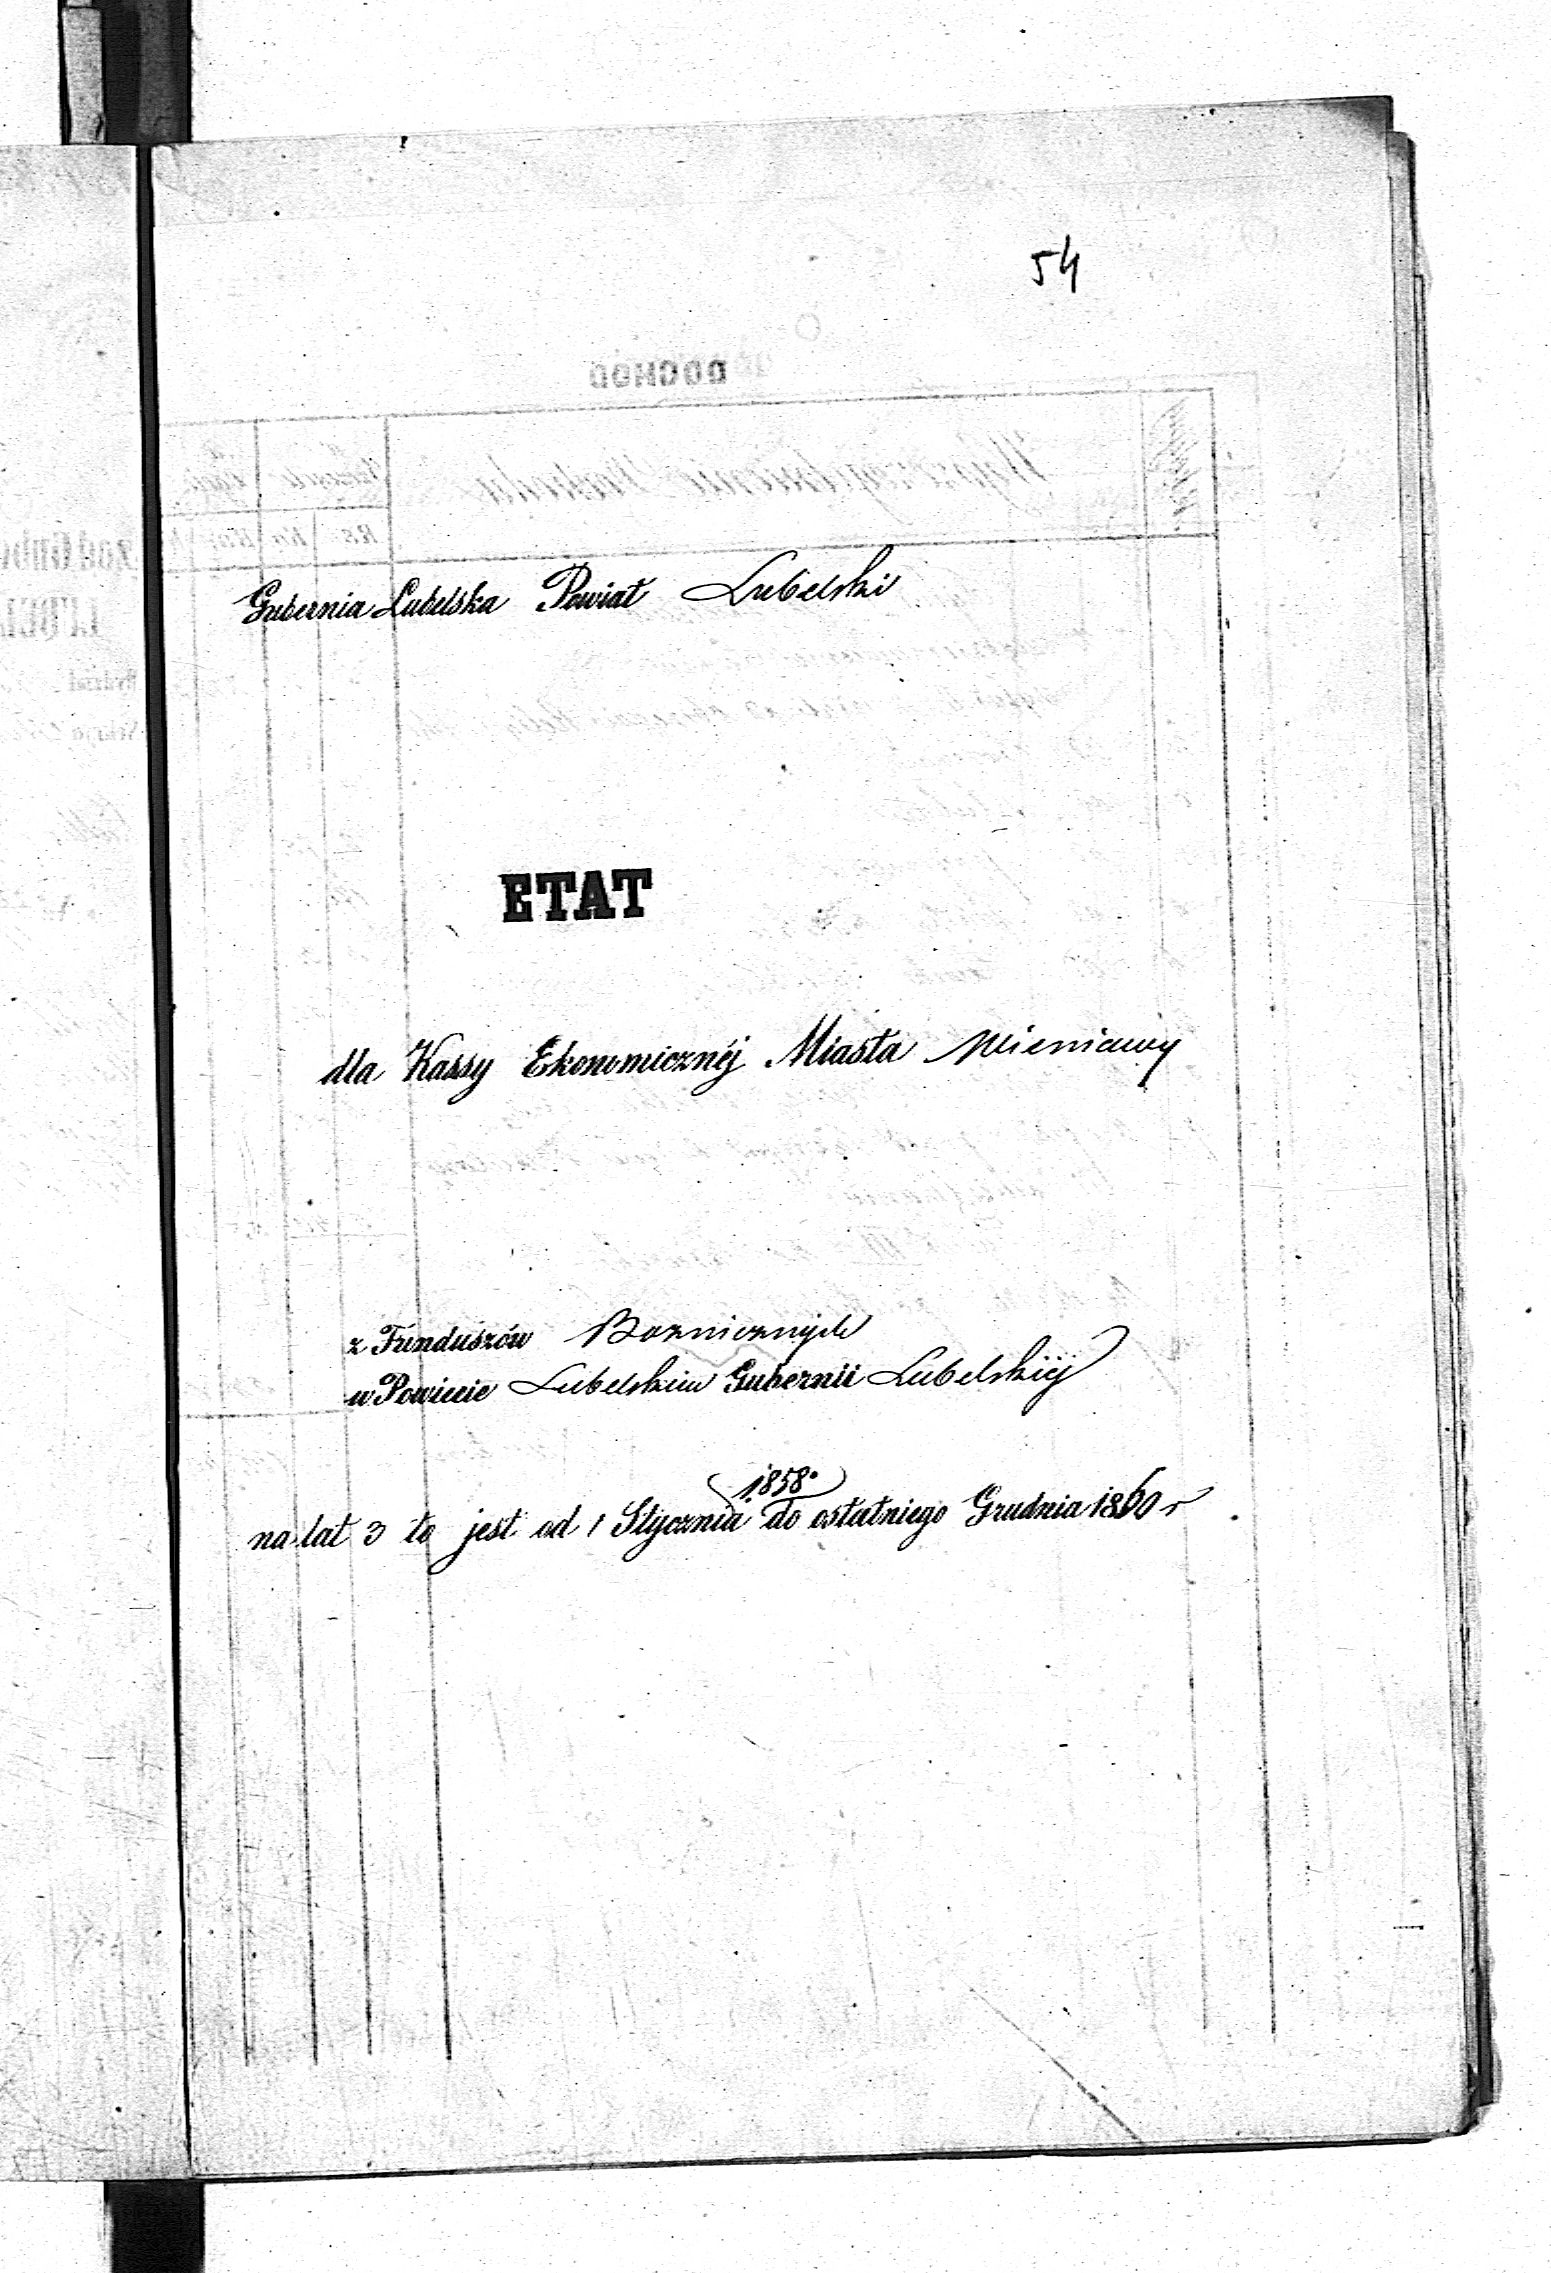 54
Gubernia Lubelska Powiat Lubelski
ETAT
dla Kassy Ekonomicznéj Miasta Wieniawy
z Funduszów Boznicznych
w Powiecie Lubelskim Gubernii Lubelskiéj
1858.
na lat 3 to jest od 1 Stycznia do ostatniego Grudnia 1860 r